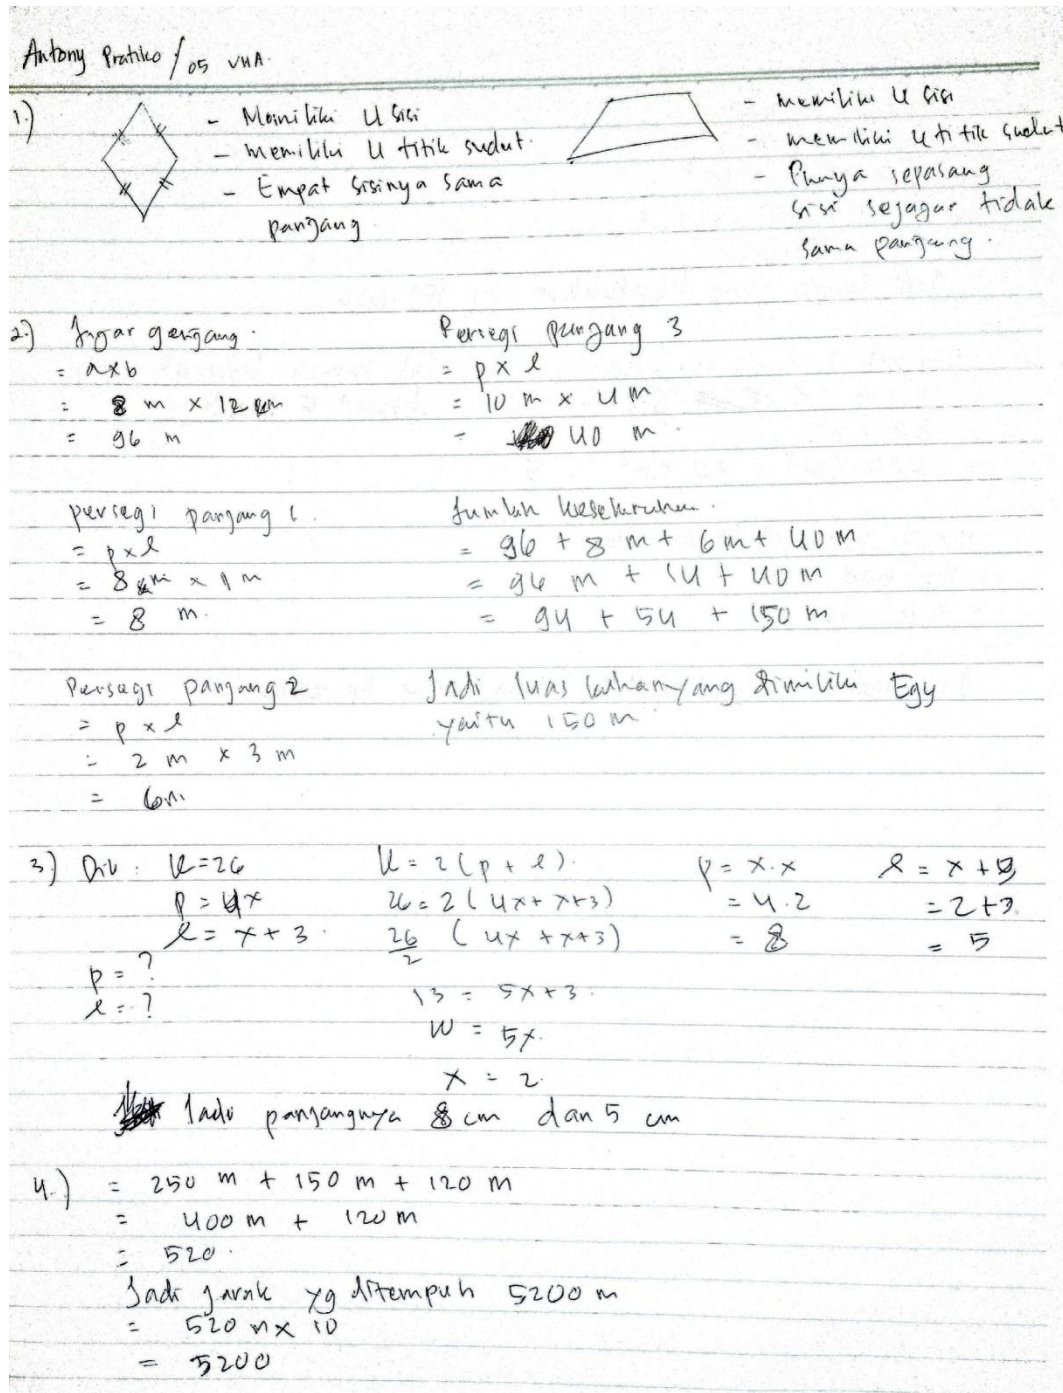 Antony Pratiko / 05 VIIA.
1.)
- Memiliki 4 sisi
- memiliki 4 titik sudut.
- Empat sisinya sama
panjang
- memiliki 4 sisi
- memiliki 4 titik sudut
- Punya sepasang
sisi sejajar tidak
sama panjang.
2.) Jajar genjang.
= a x b
= 8 m x 12 m
= 96 m
Persegi panjang 3
= p x l
= 10 m x 4 m
= 40 m.
persegi panjang 1.
= p x l
= 8 m x 1 m
= 8 m.
Jumlah keseluruhan.
= 96 + 8 m + 6 m + 40 m
= 96 m + 14 + 40 m
= 94 + 54 + 150 m
Persegi panjang 2
= p x l
= 2 m x 3 m
= 6m
Jadi luas lahan yang dimiliki Egy
yaitu 150 m
3) Dik : K = 26
p = 4x
l = x + 3.
p = ?
l = ?
K = 2 (p + l).
26 = 2 ( 4x + x+3)
26/2 ( 4x + x+3)
13 = 5x+3.
10 = 5x.
x = 2.
p = x.x
= 4.2
= 8
l = x +
= 2+3.
= 5
Jadi panjangnya 8 cm dan 5 cm
4.) = 250 m + 150 m + 120 m
= 400 m + 120 m
= 520.
Jadi jarak yg ditempuh 5200 m
= 520 m x 10
= 5200